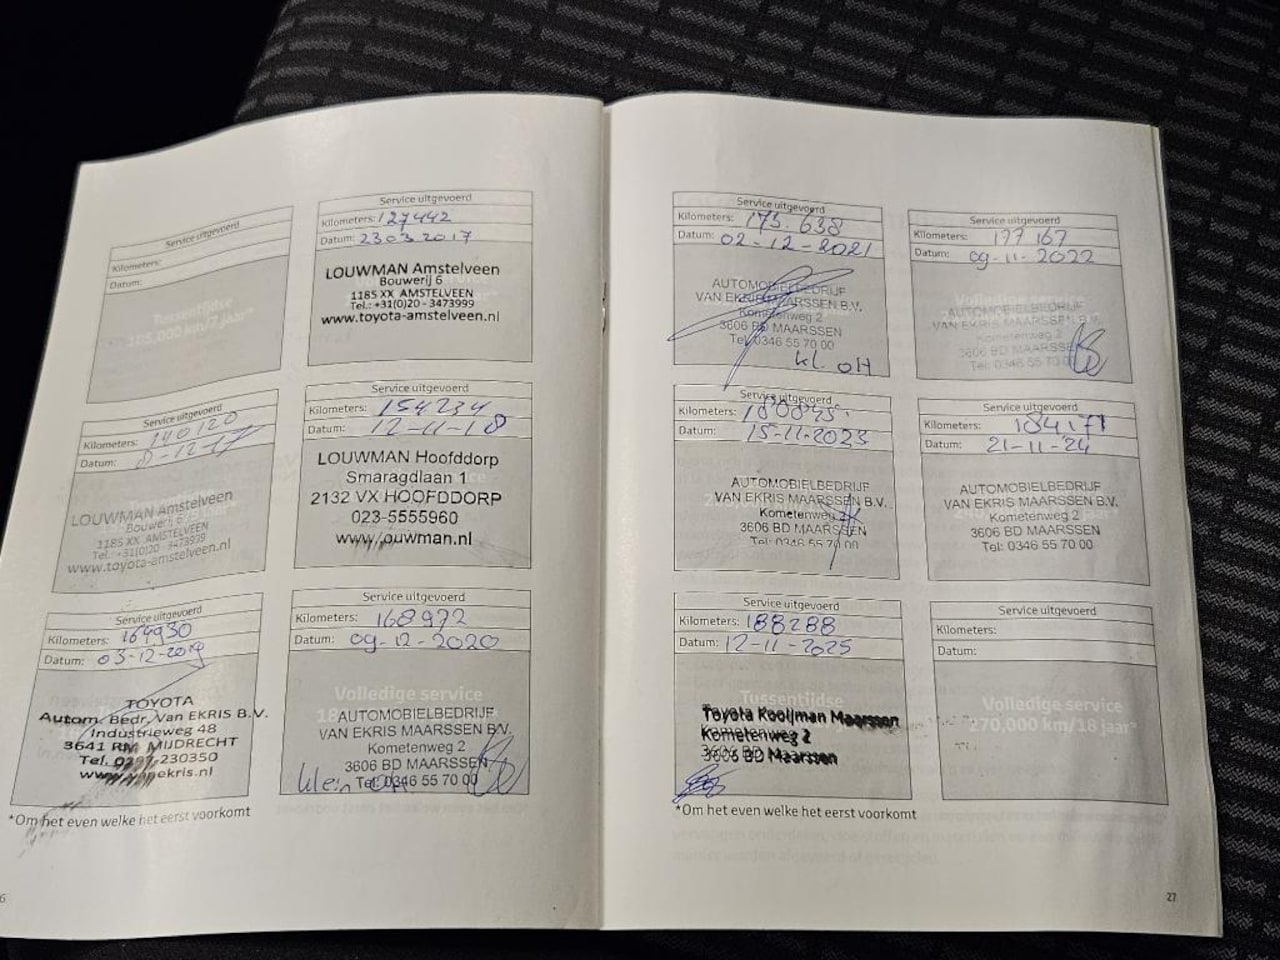 Service uitgevoerd
Kilometers:
Datum:
Tussentijdse
105,000 km/7 jaar*
Service uitgevoerd
Kilometers: 127442
Datum: 23 03 2017
LOUWMAN Amstelveen
Bouwerij 6
1185 XX AMSTELVEEN
Tel.: +31(0)20 - 3473999
www.toyota-amstelveen.nl
Service uitgevoerd
Kilometers: 140120
Datum: 8-12-17
LOUWMAN Amstelveen
Bouwerij 6
1185 XX AMSTELVEEN
Tel.: +31(0)20 - 3473999
www.toyota-amstelveen.nl
Service uitgevoerd
Kilometers: 154234
Datum: 12-11-18
LOUWMAN Hoofddorp
Smaragdlaan 1
2132 VX HOOFDDORP
023-5555960
www.louwman.nl
Service uitgevoerd
Kilometers: 164930
Datum: 03-12-2019
TOYOTA
Autom. Bedr. Van EKRIS B.V.
Industrieweg 48
3641 RM MIJDRECHT
Tel. 0297-230350
www.vanekris.nl
Service uitgevoerd
Kilometers: 168972
Datum: 09-12-2020
Volledige service
AUTOMOBIELBEDRIJF
VAN EKRIS MAARSSEN B.V.
Kometenweg 2
3606 BD MAARSSEN
Tel: 0346 55 70 00
klein OH
*Om het even welke het eerst voorkomt
6
Service uitgevoerd
Kilometers: 173.638
Datum: 02-12-2021
AUTOMOBIELBEDRIJF
VAN EKRIS MAARSSEN B.V.
Kometenweg 2
3606 BD MAARSSEN
Tel: 0346 55 70 00
kl. OH
Service uitgevoerd
Kilometers: 177 167
Datum: 09-11-2022
AUTOMOBIELBEDRIJF
VAN EKRIS MAARSSEN B.V.
Kometenweg 2
3606 BD MAARSSEN
Tel: 0346 55 70 00
Service uitgevoerd
Kilometers: 180045
Datum: 15-11-2023
AUTOMOBIELBEDRIJF
VAN EKRIS MAARSSEN B.V.
Kometenweg 2
3606 BD MAARSSEN
Tel: 0346 55 70 00
Service uitgevoerd
Kilometers: 184171
Datum: 21-11-24
AUTOMOBIELBEDRIJF
VAN EKRIS MAARSSEN B.V.
Kometenweg 2
3606 BD MAARSSEN
Tel: 0346 55 70 00
Service uitgevoerd
Kilometers: 188288
Datum: 12-11-2025
Tussentijdse
Toyota Kooijman Maarssen
Kometenweg 2
3606 BD Maarssen
Service uitgevoerd
Kilometers:
Datum:
Volledige service
270,000 km/18 jaar*
*Om het even welke het eerst voorkomt
27